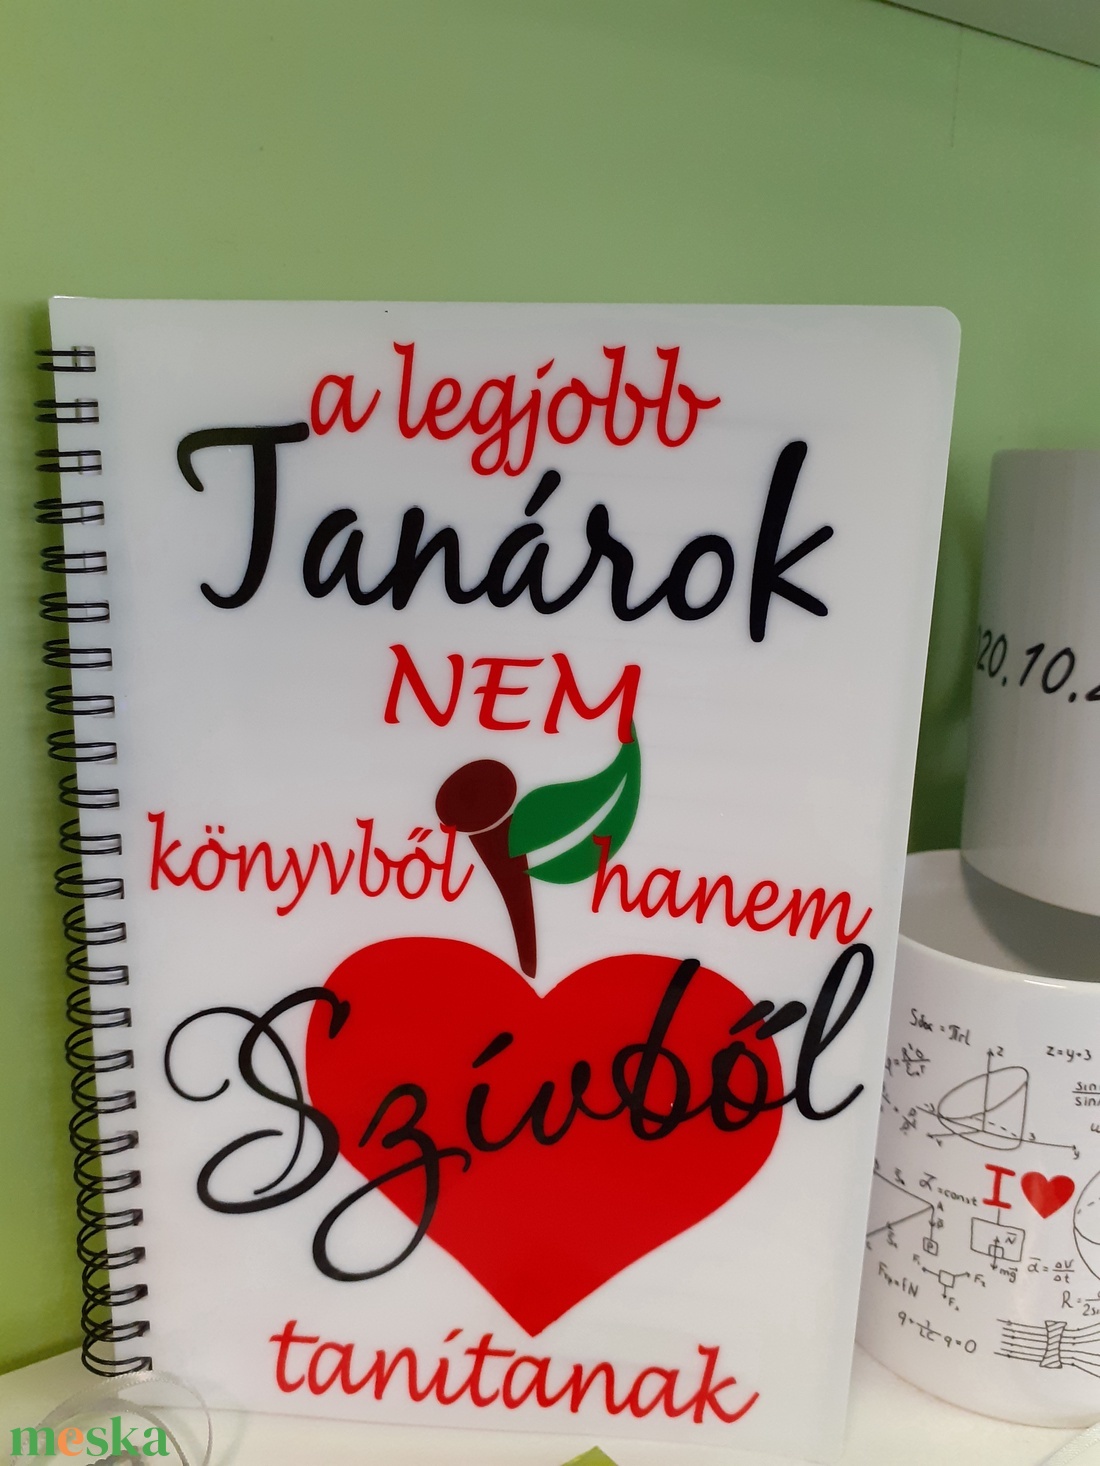 a legjobb
Tanárok
NEM
könyvből hanem
Szívből
tanítanak
20.10.2
z=y+3
I
α=const
R=
meska